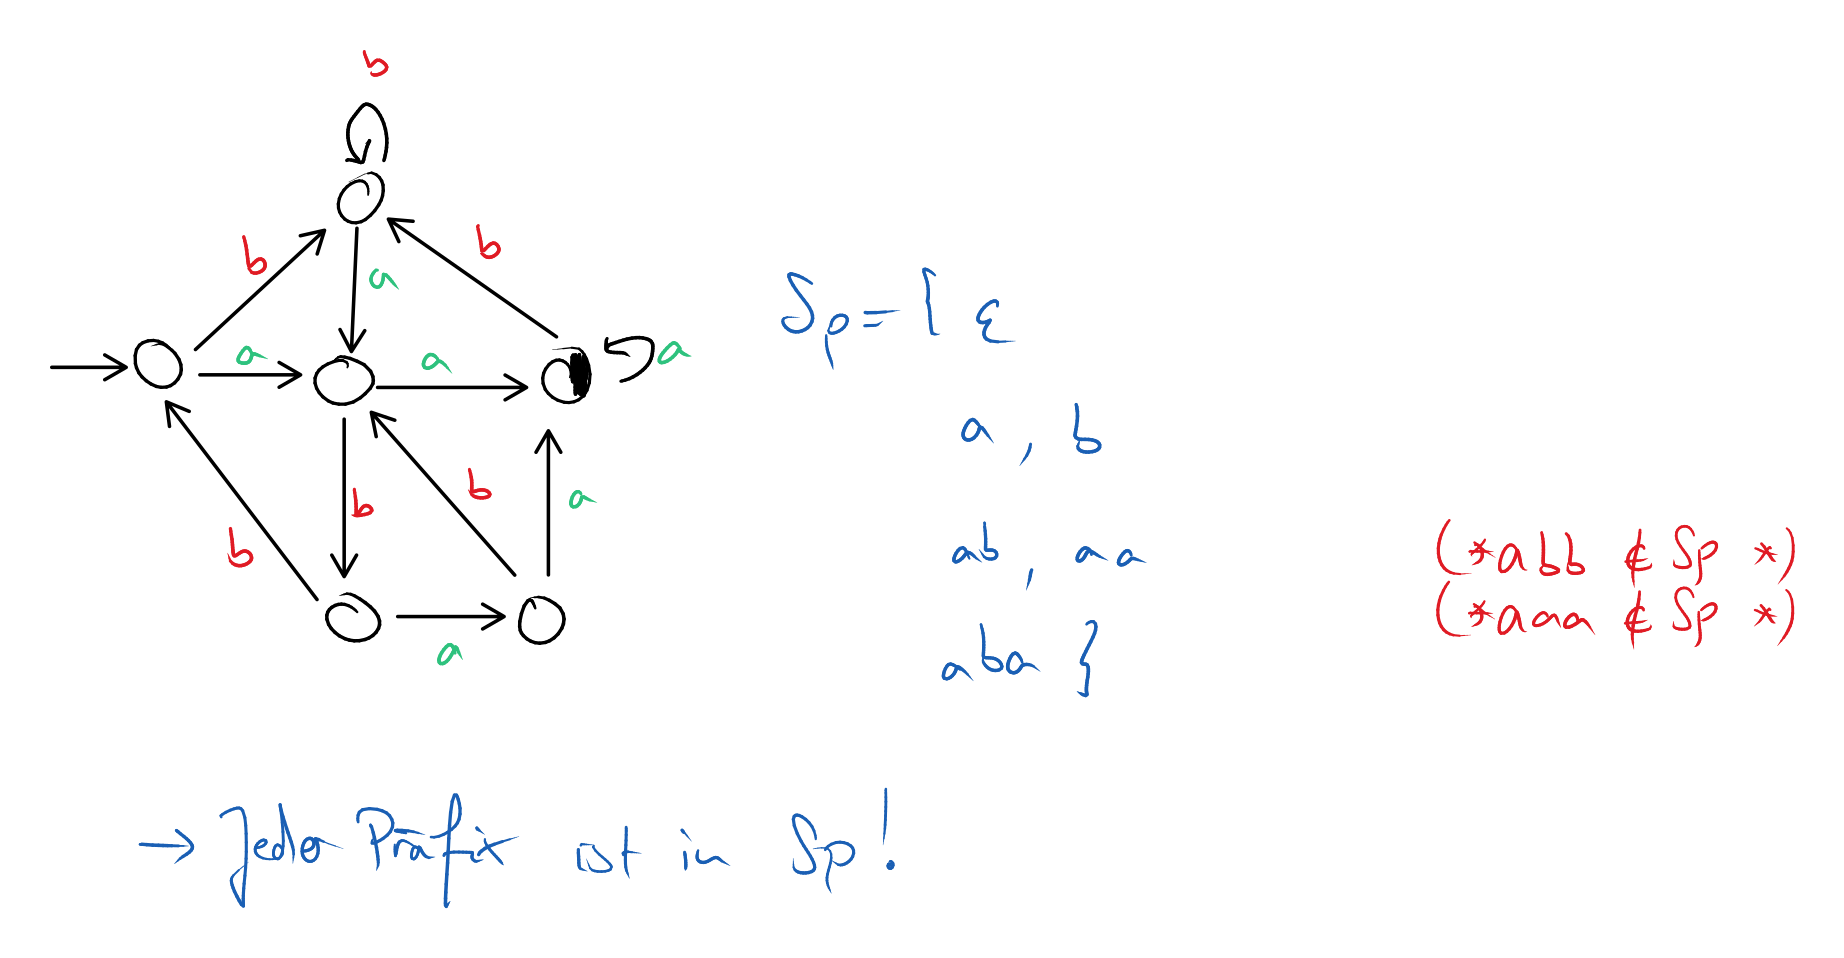 b
b
b
a
a
a
a
b
b
b
a
a
Sp = { ε
a , b
ab , aa
aba }
(*abb ∉ Sp *)
(*aaa ∉ Sp *)
→ Jeder Präfix ist in Sp!